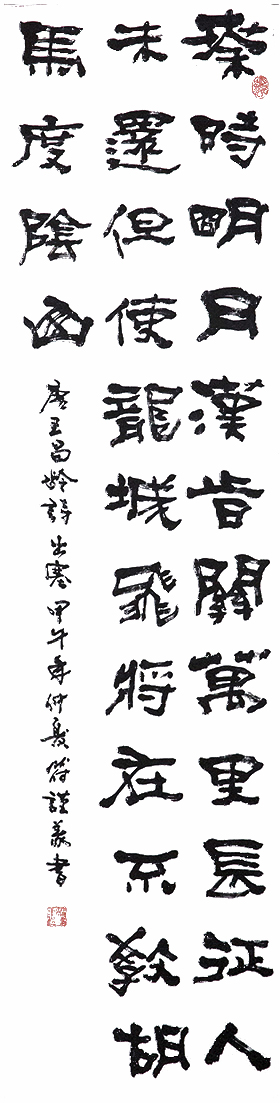 秦時明月漢旹關萬里長征人
未還但使龍城飛將在不教胡
馬度陰山
唐王昌齡詩出塞甲午年仲夏符謹義書